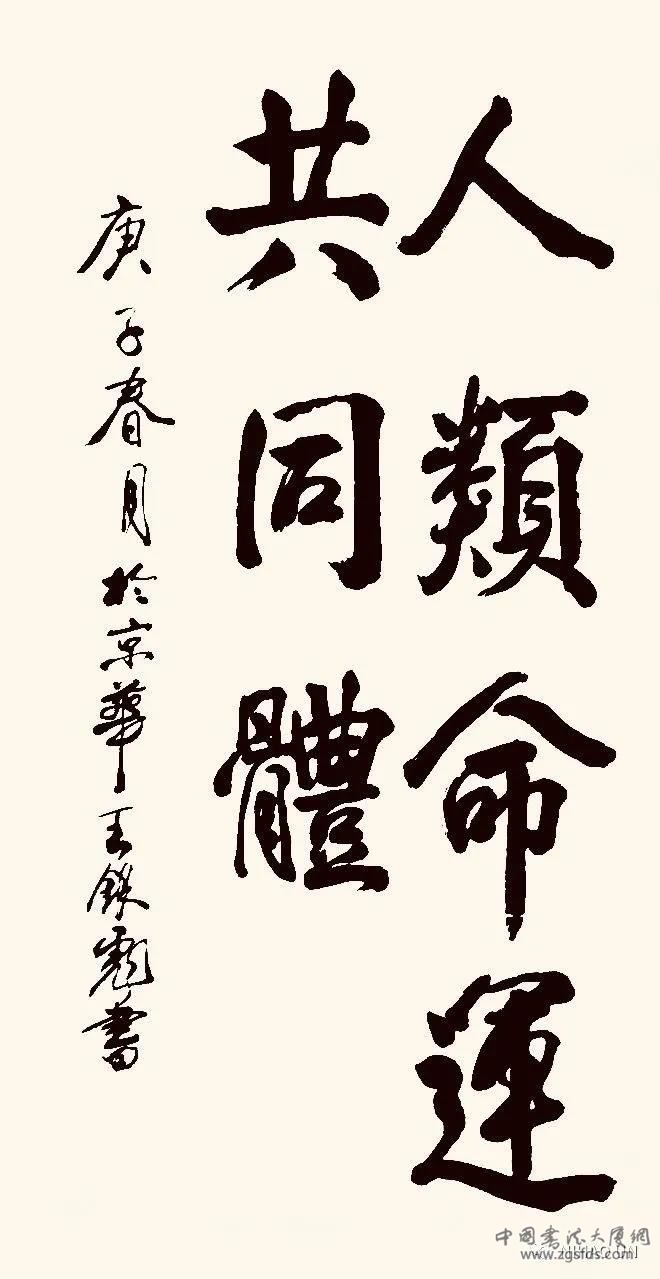 人類命運
共同體
庚子春月於京華王鉄彪書
中国书法大厦網
www.zgsfds.com